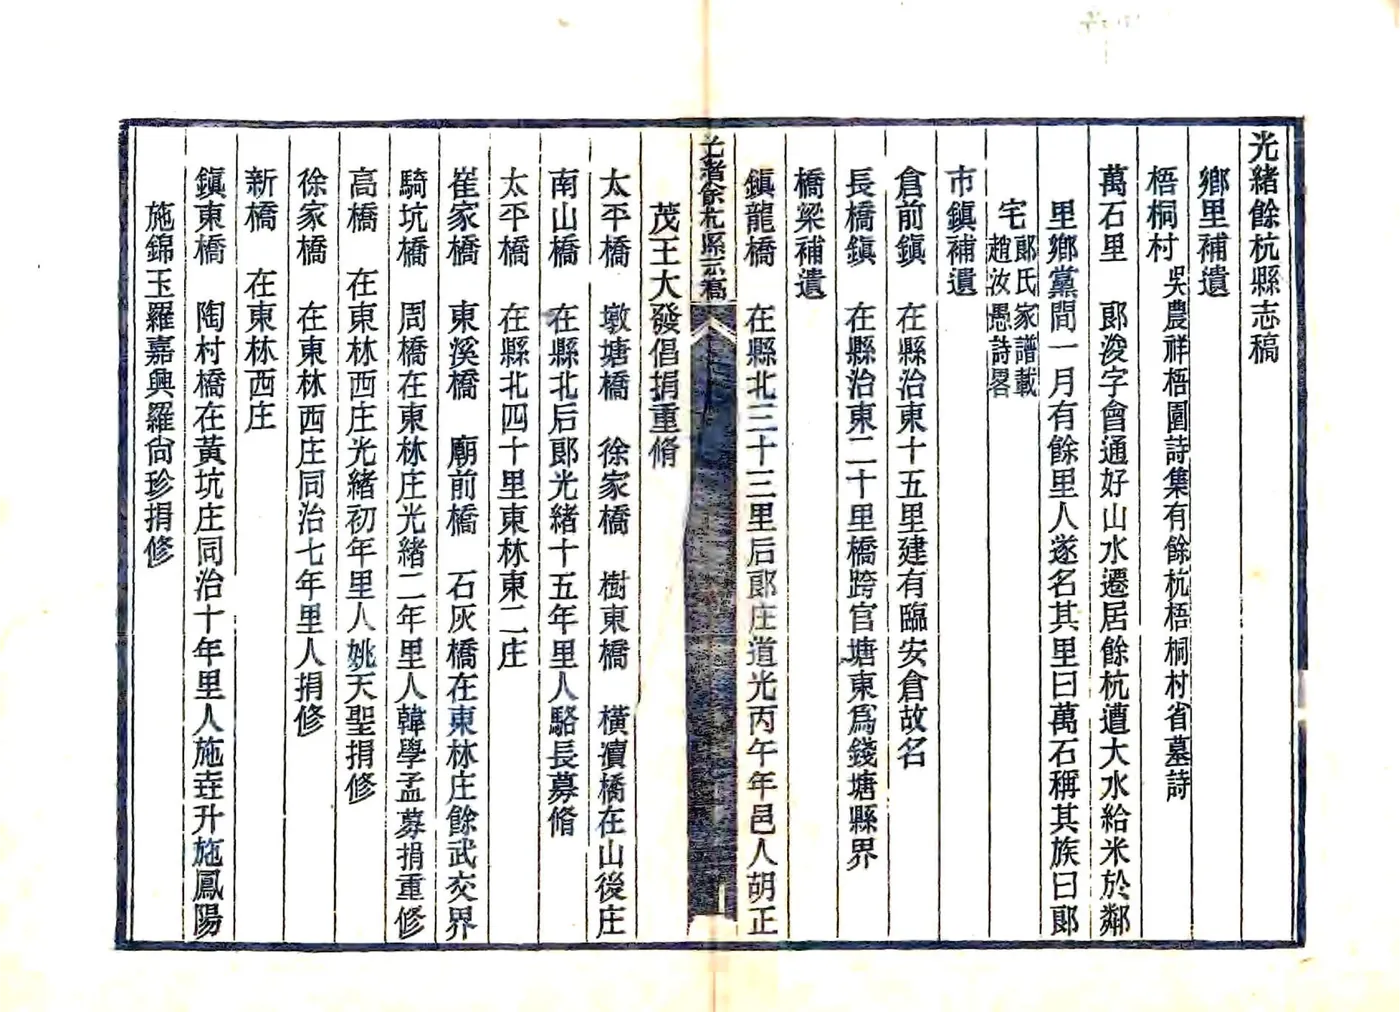 光緒餘杭縣志稿
鄉里補遺
梧桐村 吳農祥梧園詩集有餘杭梧桐村省墓詩
萬石里 郞浚字會通好山水遷居餘杭遭大水給米於鄰
里鄉黨間一月有餘里人遂名其里曰萬石稱其族曰郞
宅 郞氏家譜載
趙汝愚詩畧
市鎭補遺
倉前鎭 在縣治東十五里建有臨安倉故名
長橋鎭 在縣治東二十里橋跨官塘東爲錢塘縣界
橋梁補遺
鎭龍橋 在縣北三十三里后郞庄道光丙午年邑人胡正
光緒餘杭縣志稿
茂王大發倡捐重脩
太平橋 墩塘橋 徐家橋 樹東橋 橫瀆橋在山後庄
南山橋 在縣北后郞光緒十五年里人駱長募脩
太平橋 在縣北四十里東林東二庄
崔家橋 東溪橋 廟前橋 石灰橋在東林庄餘武交界
騎坑橋 周橋在東林庄光緒二年里人韓學孟募捐重修
高橋 在東林西庄光緒初年里人姚天聖捐修
徐家橋 在東林西庄同治七年里人捐修
新橋 在東林西庄
鎭東橋 陶村橋在黃坑庄同治十年里人施垚升施鳳陽
施錦玉羅嘉興羅尙珍捐修